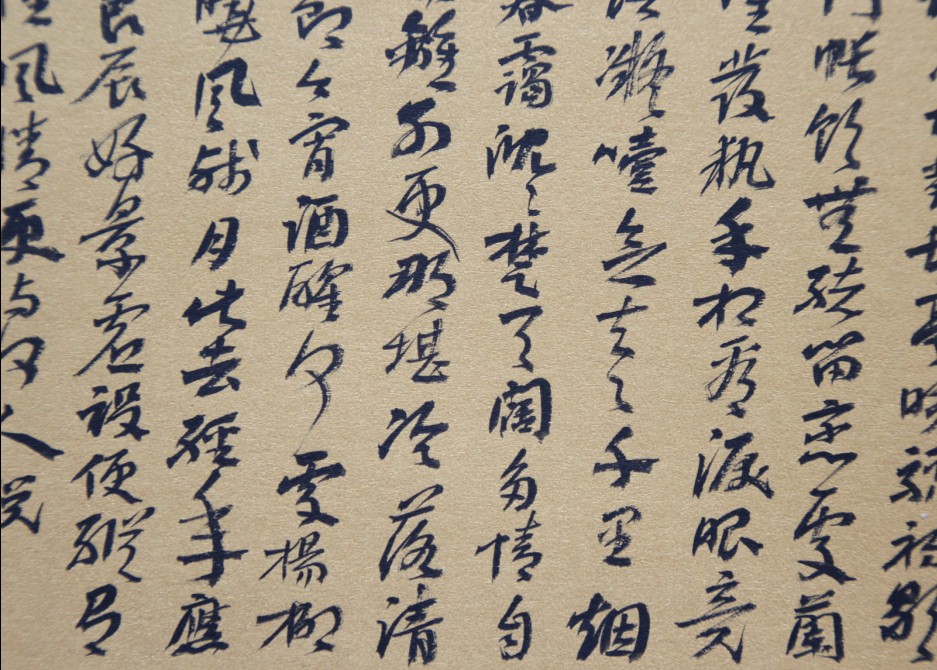 對長亭晚驟初歇
門帳飲無緒留戀處蘭
發執手相看淚眼竟
語凝噎念去々千里烟
暮靄沈々楚天闊多情自
離別更那堪冷落清
節今宵酒醒何處楊柳
曉風殘月此去經年應
良辰好景虛設便縱有
風情更與何人說